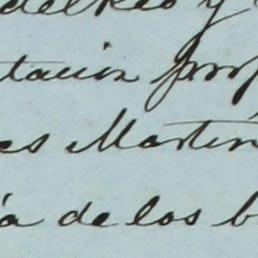 del Reo y
tacion prop
es Martin
ia de los b